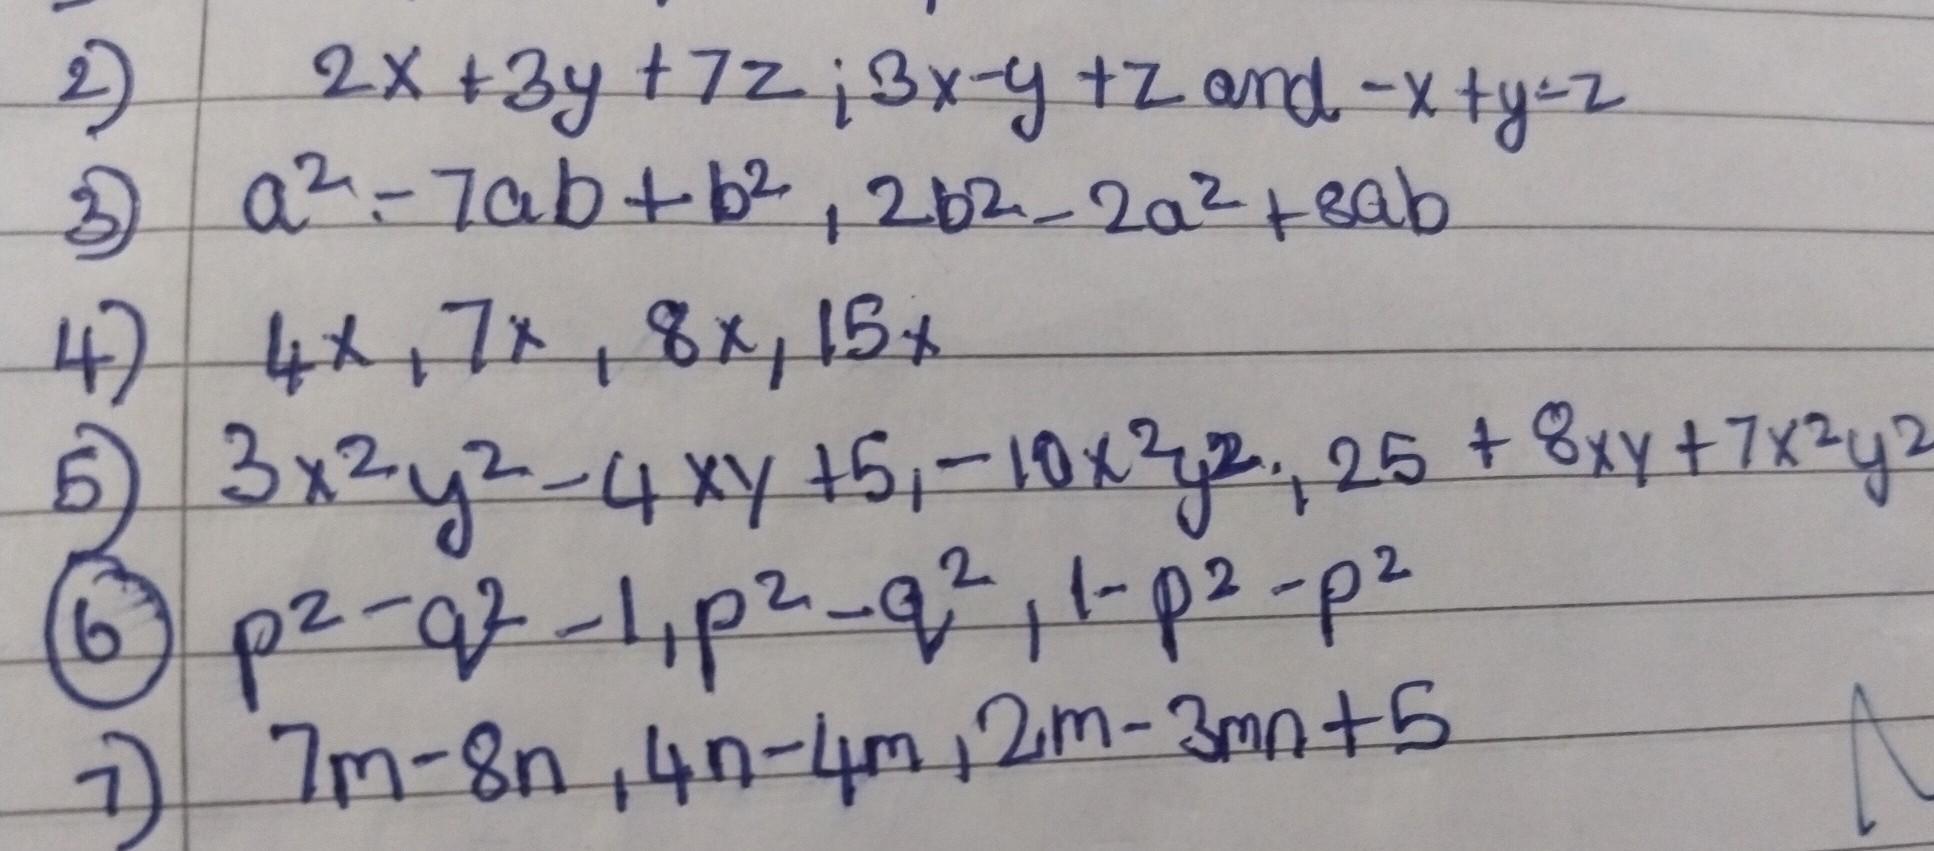 2) 2x + 3y + 7z ; 3x - y + z and - x + y - z
3) a² - 7ab + b² , 2b² - 2a² + 8ab
4) 4x , 7x , 8x , 15x
5) 3x²y² - 4xy + 5 , - 10x²y² , 25 + 8xy + 7x²y²
6 p² - q² - 1 , p² - q² , 1 - p² - p²
7) 7m - 8n , 4n - 4m , 2m - 3mn + 5